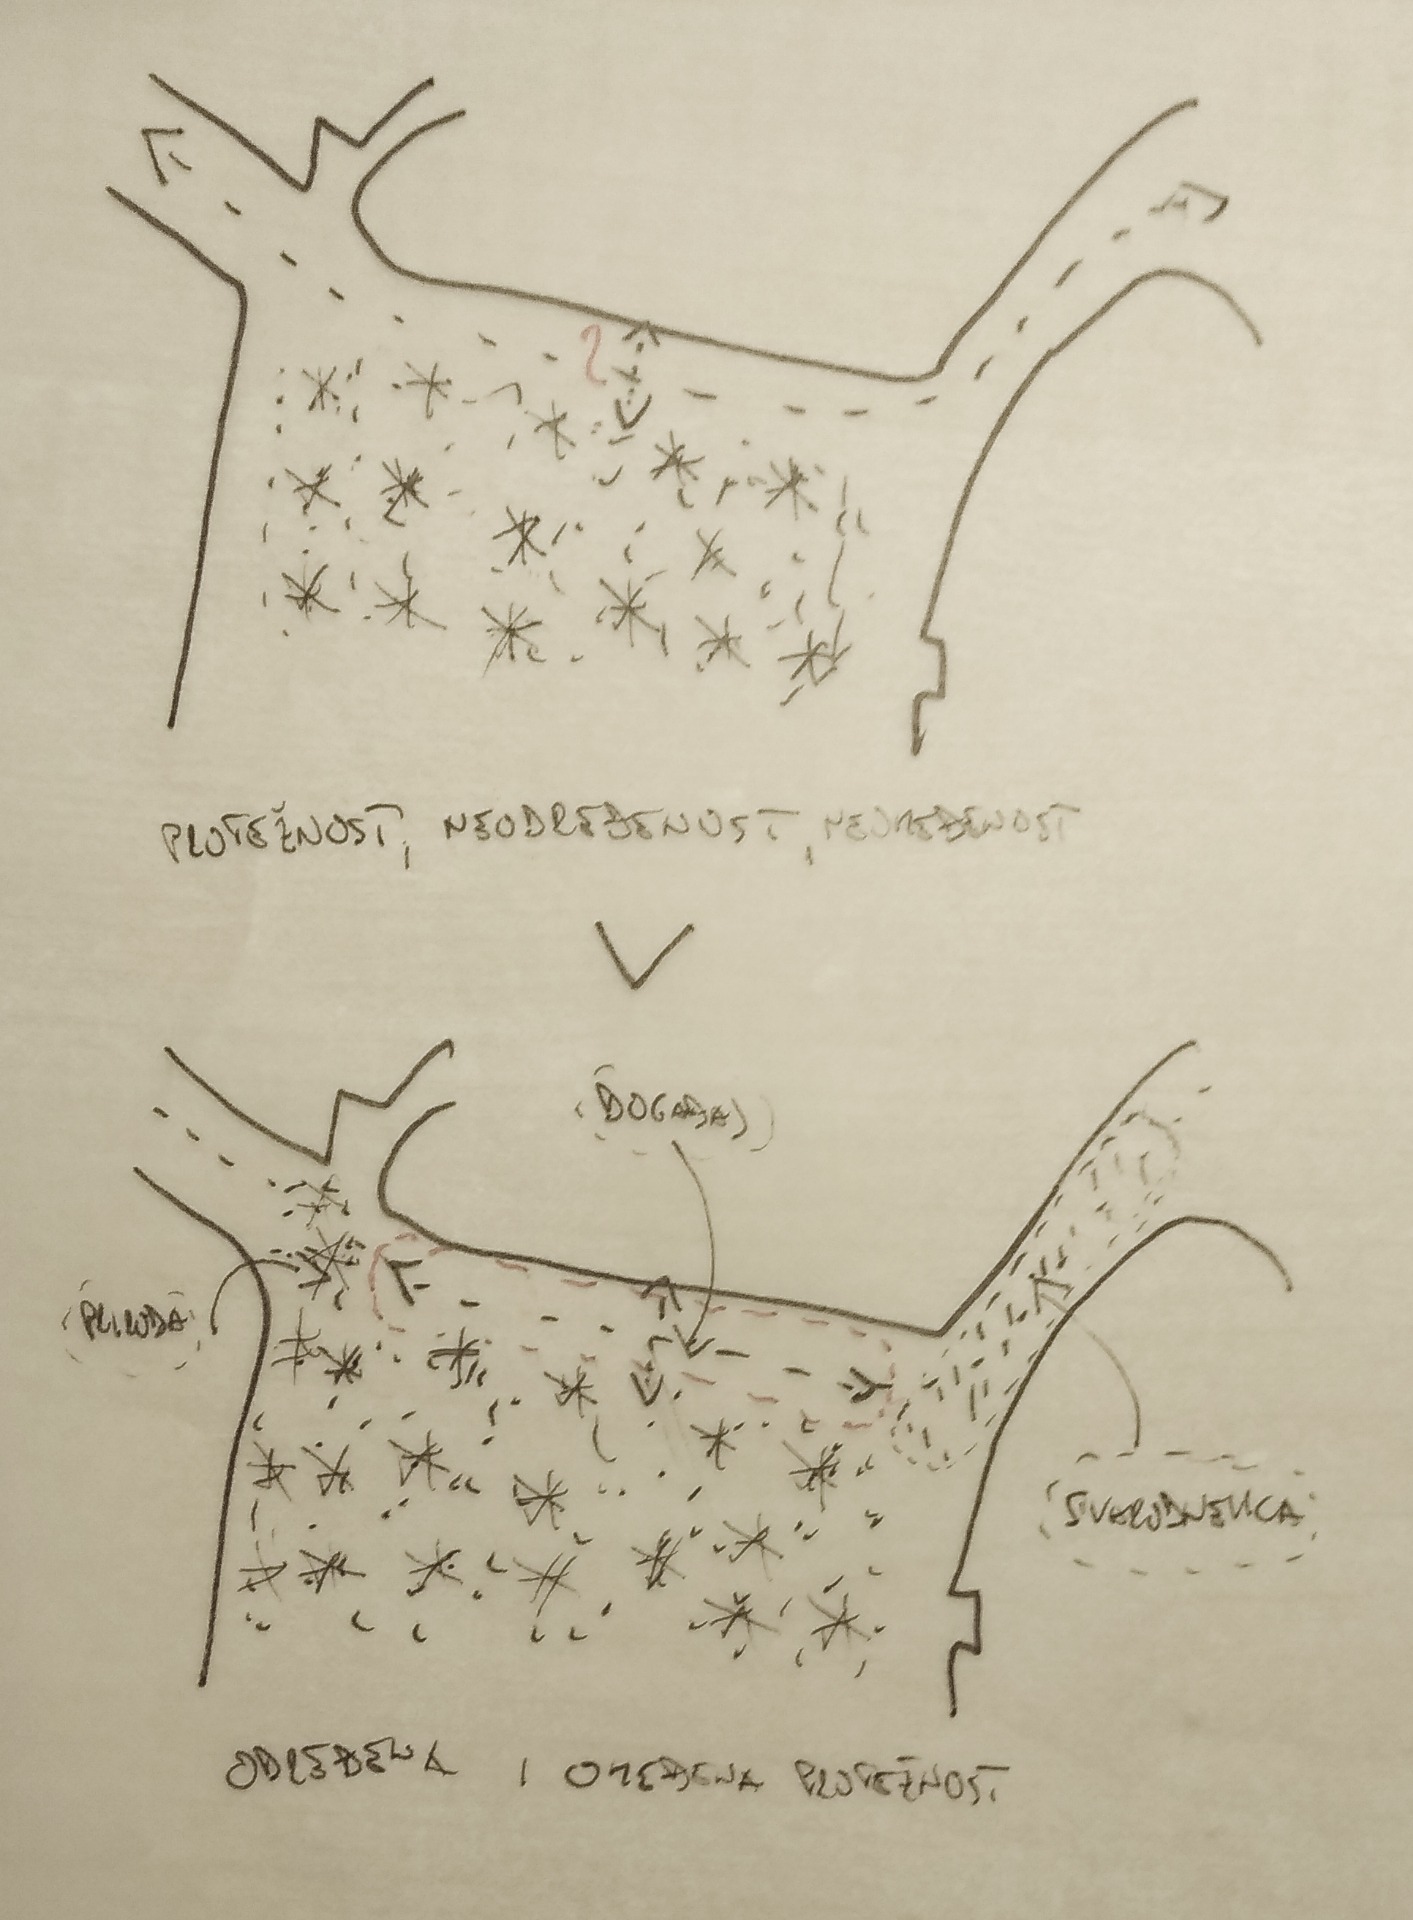 PROTEŽNOST, NEODREĐENOST, NEOMEĐENOST
DOGAĐAJ
PRIRODA
SVAKODNEVICA
ODREĐENA I OMEĐENA PROTEŽNOST